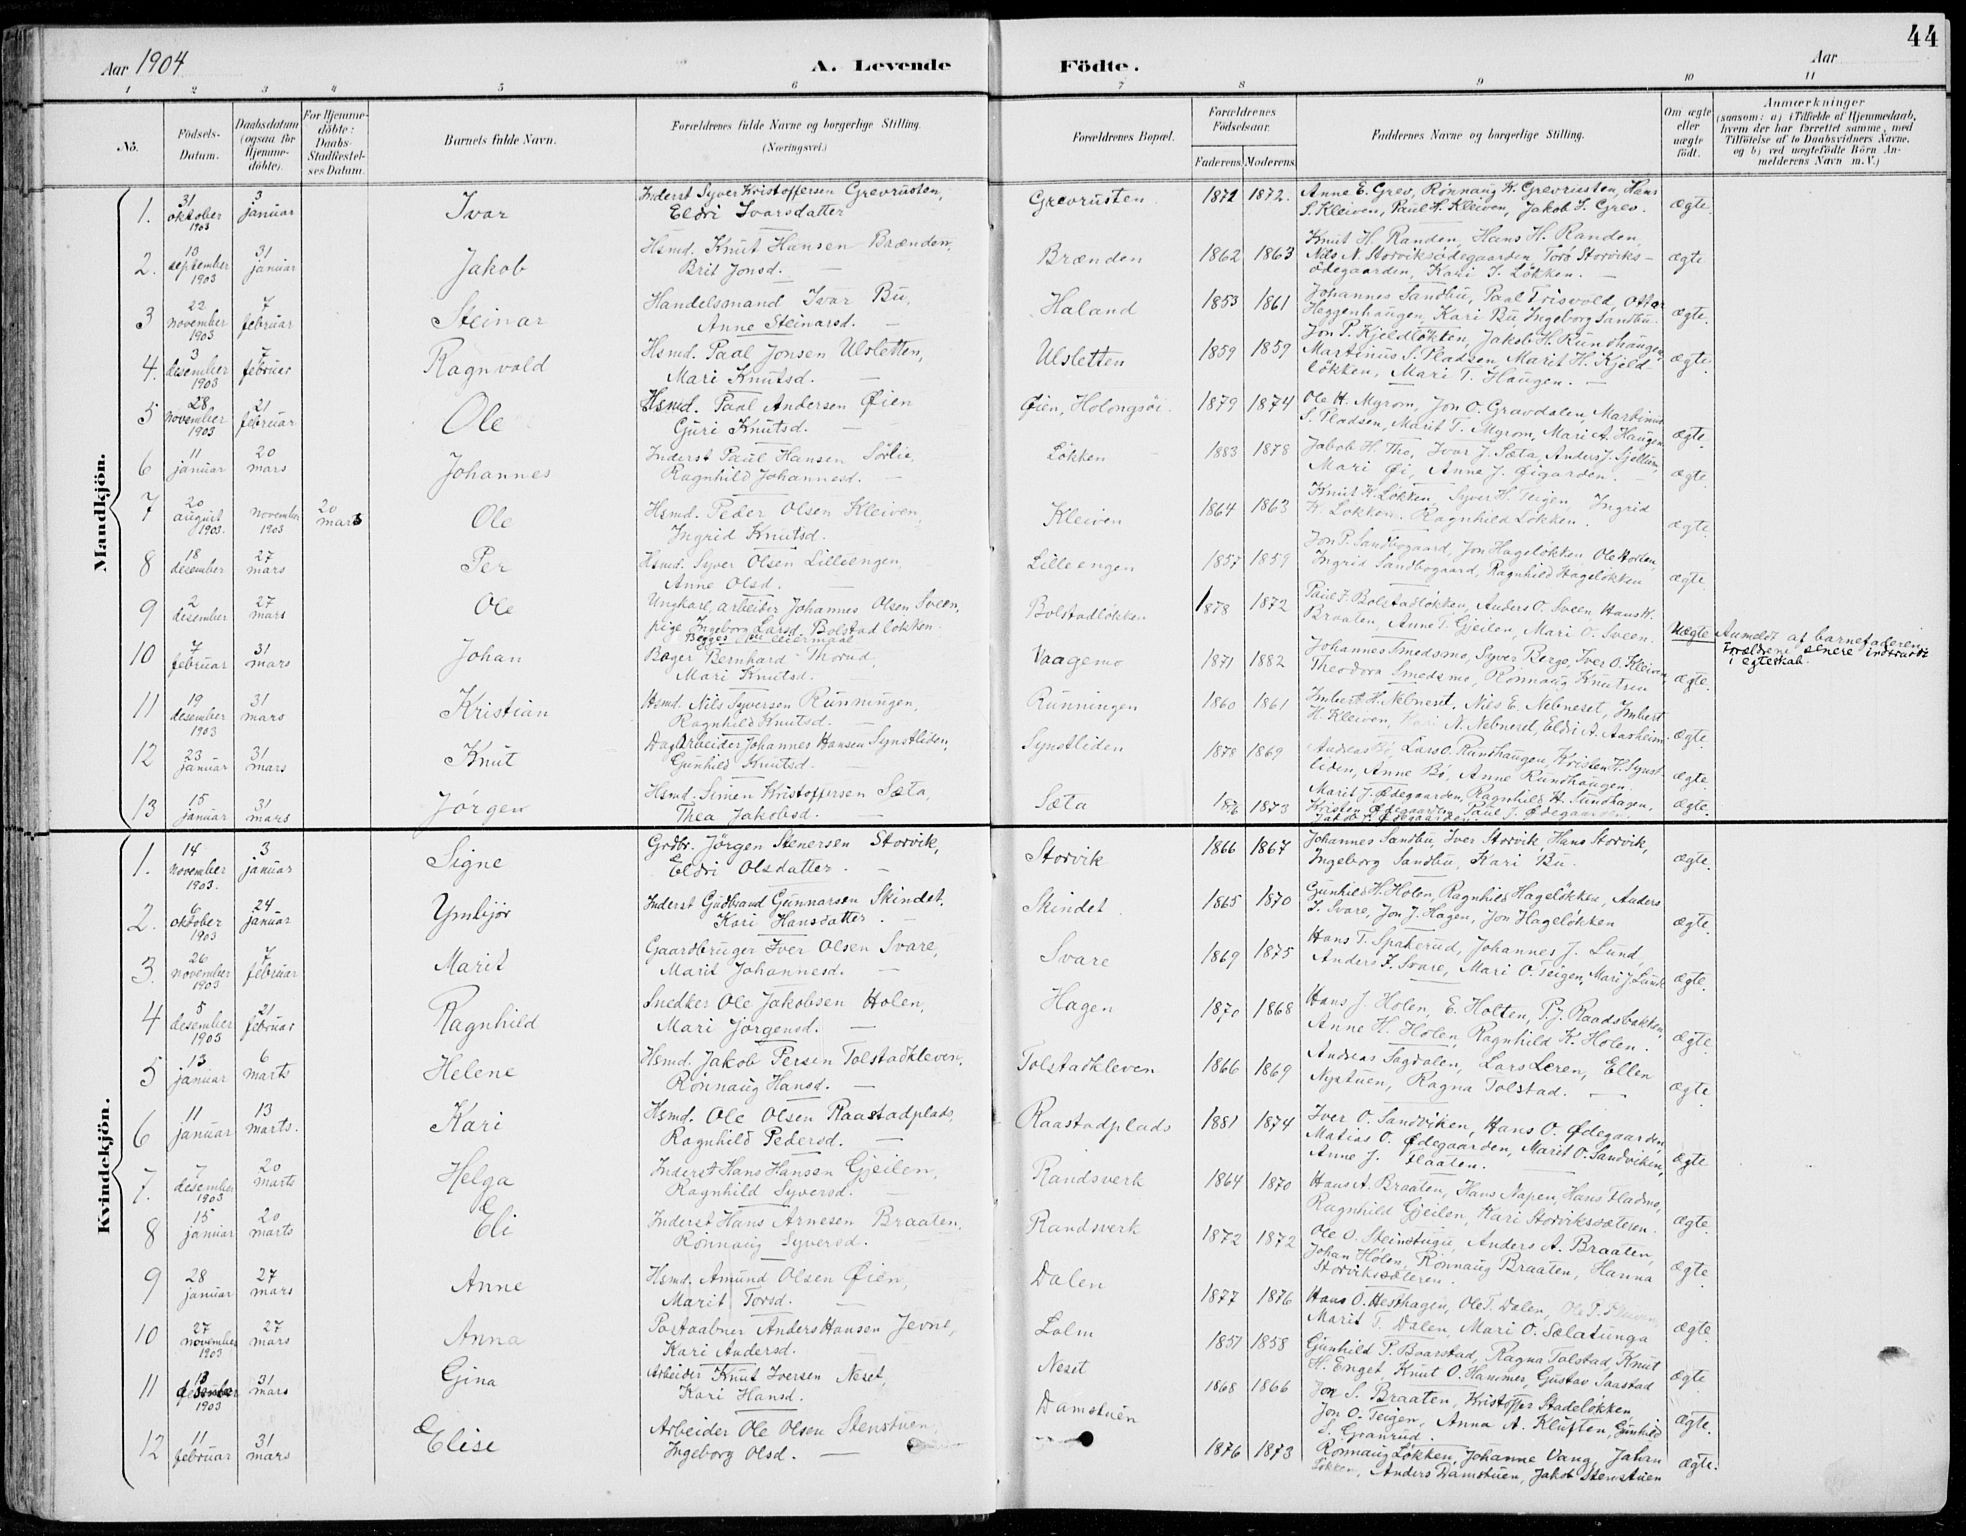 44
Aar 1904
A. Levende Födte.
Aar
1 2 3 4 5 6 7 8 9 10 11
No.
Födsels-Datum.
Daabsdatum (ogsaa for Hjemme-döbte).
For Hjemme-döbte: Daabs-Stadfæstel-ses Datum.
Barnets fulde Navn.
Forældrenes fulde Navne og borgerlige Stilling. (Næringsvei.)
Forældrenes Bopæl.
Forældrenes Födselsaar.
Faderens. Moderens.
Faddernes Navne og borgerlige Stilling.
Om ægte eller uægte födt.
Anmærkninger
(saasom: a) i Tilfælde af Hjemmedaab, hvem der har forrettet samme, med Tilföielse af to Daabsvidners Navne, og b) ved uægtefödte Börn An-melderens Navn m. V.)
Mandkjön.
1. 31 oktober 1903 3 januar Ivar Inderst Syver Kristoffersen Grevrusten, Grevrusten. 1872 1872. Anne E. Grev, Rönnaug K. Grevrusten, Hans ægte.
Eldri Ivarsdatter S. Kleiven, Paul H. Kleiven, Jakob I. Grev.
2. 13 september 1903 31 januar Jakob Hsmd. Knut Hansen Brænden, Brænden 1862 1863 Knut H. Randen, Hans H. Randen, ægte
Brit Jonsd. Nils N. Storviksödegaarden, Tora Storviks-
ödegaarden, Kari I. Løkken.
3 22 november 1903 7 februar Steinar Handelsmand Ivar Bu, Haland 1853 1861 Johannes Sandbu, Paal Trisvold, Ottar ægte.
Anne Steinarsd. Heggenhaugen, Kari Bu, Ingeborg Sandbu.
4. 3 desember 1903 7 februar Ragnvald Hsmd. Paal Jonsen Ulsletten, Ulsletten 1859 1859 Jon P. Kjeldløkken, Jakob H. Rundhaugen, ægte.
Mari Knutsd. Martinus S. Pladsen, Marit H. Kjeld-
løkken, Mari T. Haugen.
5 28 november 1903 21 februar Ole Hsmd. Paal Andersen Øien Øien, Holongsöi. 1879 1874 Ole H. Myrom, Jon O. Gravdalen, Martinus ægte.
Guri Knutsd. S. Pladsen, Marit T. Myrom, Mari A. Haugen
6 11 januar 20 mars Johannes Inderst Paul Hansen Sörlie, Løkken 1883 1878 Jakob H. Tho, Ivar J. Sæta, Anders J. Sjellum, ægte.
Ragnhild Johannesd. Mari Øi, Anne J. Øigarden.
7 20 august 1903. november 1903 20 mars Ole Hsmd. Peder Olsen Kleiven Kleiven 1864 1863 Knut K. Løkken, Syver H. Teigen, Ingrid ægte
Ingrid Knutsd. K. Løkken. Ragnhild Løkken.
8 18 desember 27 mars Per Hsmd. Syver Olsen Lilleengen, Lilleengen 1857 1859 Jon P. Sandbogaard, Jon Hageløkken, Ole Holen, ægte
Anne Olsd. Ingrid Sandbogaard, Ragnhild Hageløkken
9 2 desember 27 mars Ole Ungkarl, arbeider Johannes Olsen Sveen, Bolstadløkken 1878 1872 Paul I. Bolstadløkken, Anders O. Sveen Hans H. Uægte Anmeldt af barnefaderen
pige Ingeborg Larsd. Bolstadløkken. Braaten, Anne T. Gjeilen, Mari O. Sveen. Forældrene senere indtraadt
Begges 1ste leiermaal i egteskab.
10 7 februar 31 mars Johan Bager Bernhard Thorud, Vaagemo 1871 1882 Johannes Smedsmo, Syver Berge, Iver O. Kleiven, ægte.
Mari Knutsd. Theodora Smedsmo, Rönnaug Knutsen
11 19 desember 1903 31 mars Kristian Hsmd. Nils Syversen Runningen, Runningen 1860 1861 Imbert H. Nebneset, Nils E. Nebneset, Imbert ægte.
Ragnhild Knutsd. H. Kleiven, N. Nebneset, Eldri A. Aasheim.
12 23 januar 31 mars Knut Dagarbeider Johannes Hansen Synstliden, Synstliden 1878 1869 Andreas Bö, Lars O. Rundhaugen, Kristen H. Synst- ægte.
Gunhild Knutsd. liden, Anne Bö, Anne Rundhaugen.
13 15 januar 31 mars Jørgen Hsmd. Simen Kristoffersen Sæta, Sæta 1873 Marit J. Ødegaarden, Ragnhild H. Sundhagen, ægte.
Thea Jakobsd. Kristen Ødegaarden, Paul J. Ødegaarden.
Jakob P. Ødegaarden.
Kvindekjön.
1. 14 november 1903. 3 januar Signe Grdbr. Jörgen Stenersen Storvik, Storvik 1866 1867 Johannes Sandbu, Iver Storvik, Hans Storvik, ægte.
Eldri Olsdatter. Ingeborg Sandbu, Kari Bu.
2. 6 oktober 1903 24 januar Ymbjör Inderst Gudbrand Gunnarsen Skindet, Skindet 1865 1870 Gunhild H. Holen, Ragnhild Hageløkken, Anders ægte.
Kari Hansdatter. I. Svare, Jon J. Hagen, Jon Hageløkken
3. 26 november 1903 7 februar Marit Gaardbruger Iver Olsen Svare, Svare 1869 1875 Hans T. Spakerud, Johannes J. Lund, ægte.
Marit Johannesd. Anders I. Svare, Mari O. Teigen, Mari J. Lund.
4 5 desember 1903 21 februar Ragnhild Snedker Ole Jakobsen Holen, Hagen 1870 1868 Hans J. Holen, E. Holten, P. J. Raadsbakken, ægte.
Mari Jörgensd. Anne H. Holen, Ragnhild K. Holen.
5 13 januar 6 marts Helene Hsmd. Jakob Persen Tolstadkleven, Tolstadkleven 1866 1869 Andreas Sagdalen, Lars Leren, Ellen ægte
Rönnaug Hansd. Nystuen, Ragna Tolstad.
6 11 januar 13 marts. Kari Hsmd. Ole Olsen Raastadplads, Raastadplads 1881 1874 Iver O. Sandviken, Hans O. Ødegaarden, ægte
Ragnhild Pedersd. Matias O. Ødegaarden, Marit O. Sandviken,
Anne J. Flaaten.
7. 7 desember 1903 20 marts Helga Inderst Hans Hansen Gjeilen, Randsverk 1864 1870 Hans A. Braaten, Hans Napen, Hans Fladmo, ægte.
Ragnhild Syversd. Ragnhild Gjeilen, Kari Storvikssæteren.
8 15 januar 20 marts Eli Inderst Hans Arnesen Braaten, Randsverk 1872 1872 Ole O. Steinstugu, Anders A. Braaten, ægte.
Rönnaug Syversd. Johan Holen, Rönnaug Braaten, Hanna
Storvikssæteren.
9 28 januar 27 mars Anne Hsmd. Amund Olsen Øien, Dalen 1877 1876 Hans O. Hesthagen, Ole T. Dalen, ægte
Marit Torsd. Marit T. Dalen, Mari O. Sælatunga
10 27 november 1903 27 mars Anna Postaabner Anders Hansen Jevne, Lalm 1851 1858 Gunhild P. Baarstad, Ragna Tolstad, Knut ægte
Kari Andersd. H. Enget, Knut O. Hammer, Gustav Saastad
11 13 desember 1903 31 mars Gina Arbeider Knut Iversen Neset, Neset 1868 1866 Jon S. Braaten, Kristoffer Stadeløkken, ægte.
Kari Hansd. Jon O. Teigen, Anna A. Kluften, Gunhild
S. Granrud.
12 11 februar 31 mars Elise Arbeider Ole Olsen Stenstuen, Damstuen 1876 1873 Rönnaug Løkken, Johanne Vang, Johan ægte.
Ingeborg Olsd. Løkken, Anders Damstuen, Jakob Stenstuen